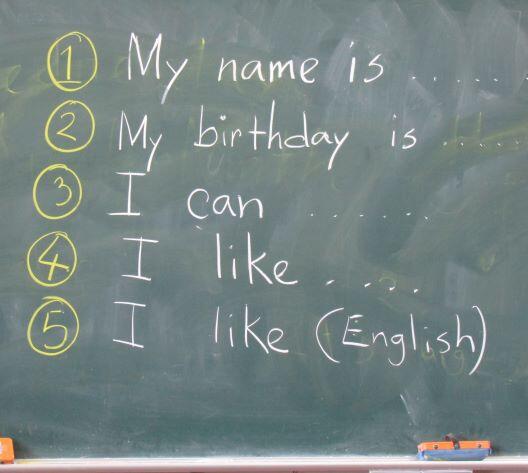 ① My name is ......
② My birthday is ......
③ I can ......
④ I like .....
⑤ I like (English)